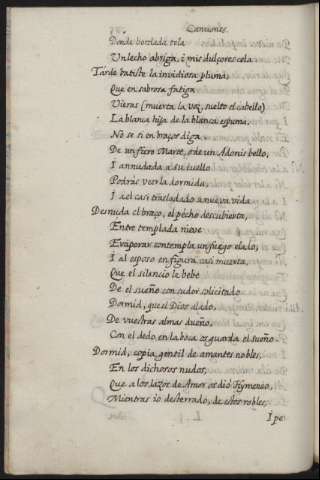 Canciones.
Donde bordada tela
Un lecho abriga, i mil dulçores cela
Tarde batiste la invidiosa pluma,
Que en sabrosa fatiga
Vieras (muerta la voz, suelto el cabello)
La blanca hija de la blanca espuma.
No se si en braços diga
De un fiero Marte, o de un Adonis bello,
I annudada a su cuello
Podras veerla dormida,
I a el casi trasladado a nueva vida
Desnuda el braço, el pecho descubierta,
Entre templada nieve
Evaporar contempla un fuego elado,
I al esposo en figura casi muerta,
Que el silencio le bebe
De el sueño con sudor solicitado.
Dormid, que el Dios alado,
De vuestras almas dueño,
Con el dedo en la boca os guarda el sueño.
Dormid, copia gentil de amantes nobles,
En los dichosos nudos,
Que a los lazos de Amor os dio Hymeneo,
Mientras io desterrado, de estos robles,
I pe